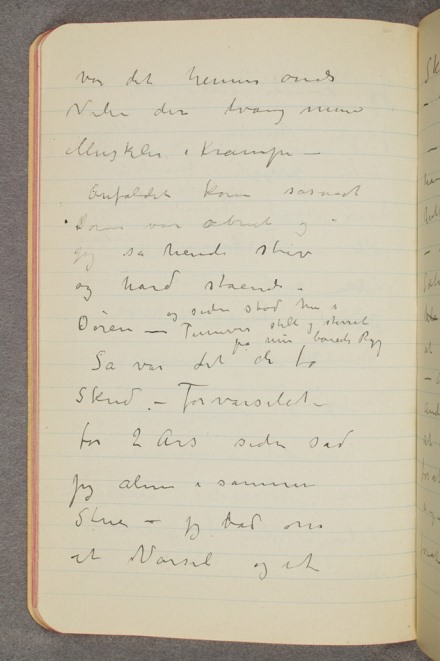 var det hennes onde
Vilje der tvang mine
Muskler i Krampe —
Anfaldet kom saasnart
Døren var åbnet og
jeg så hende stiv
og hård stående i
Døren — og siden stod hun i
Timevis stille og stirret
på min Ryg
Så var det de to
Skud. — Forvarselet —
for 2 Års siden sad
jeg alene i samme
Stue — jeg bad om
et Varsel og et